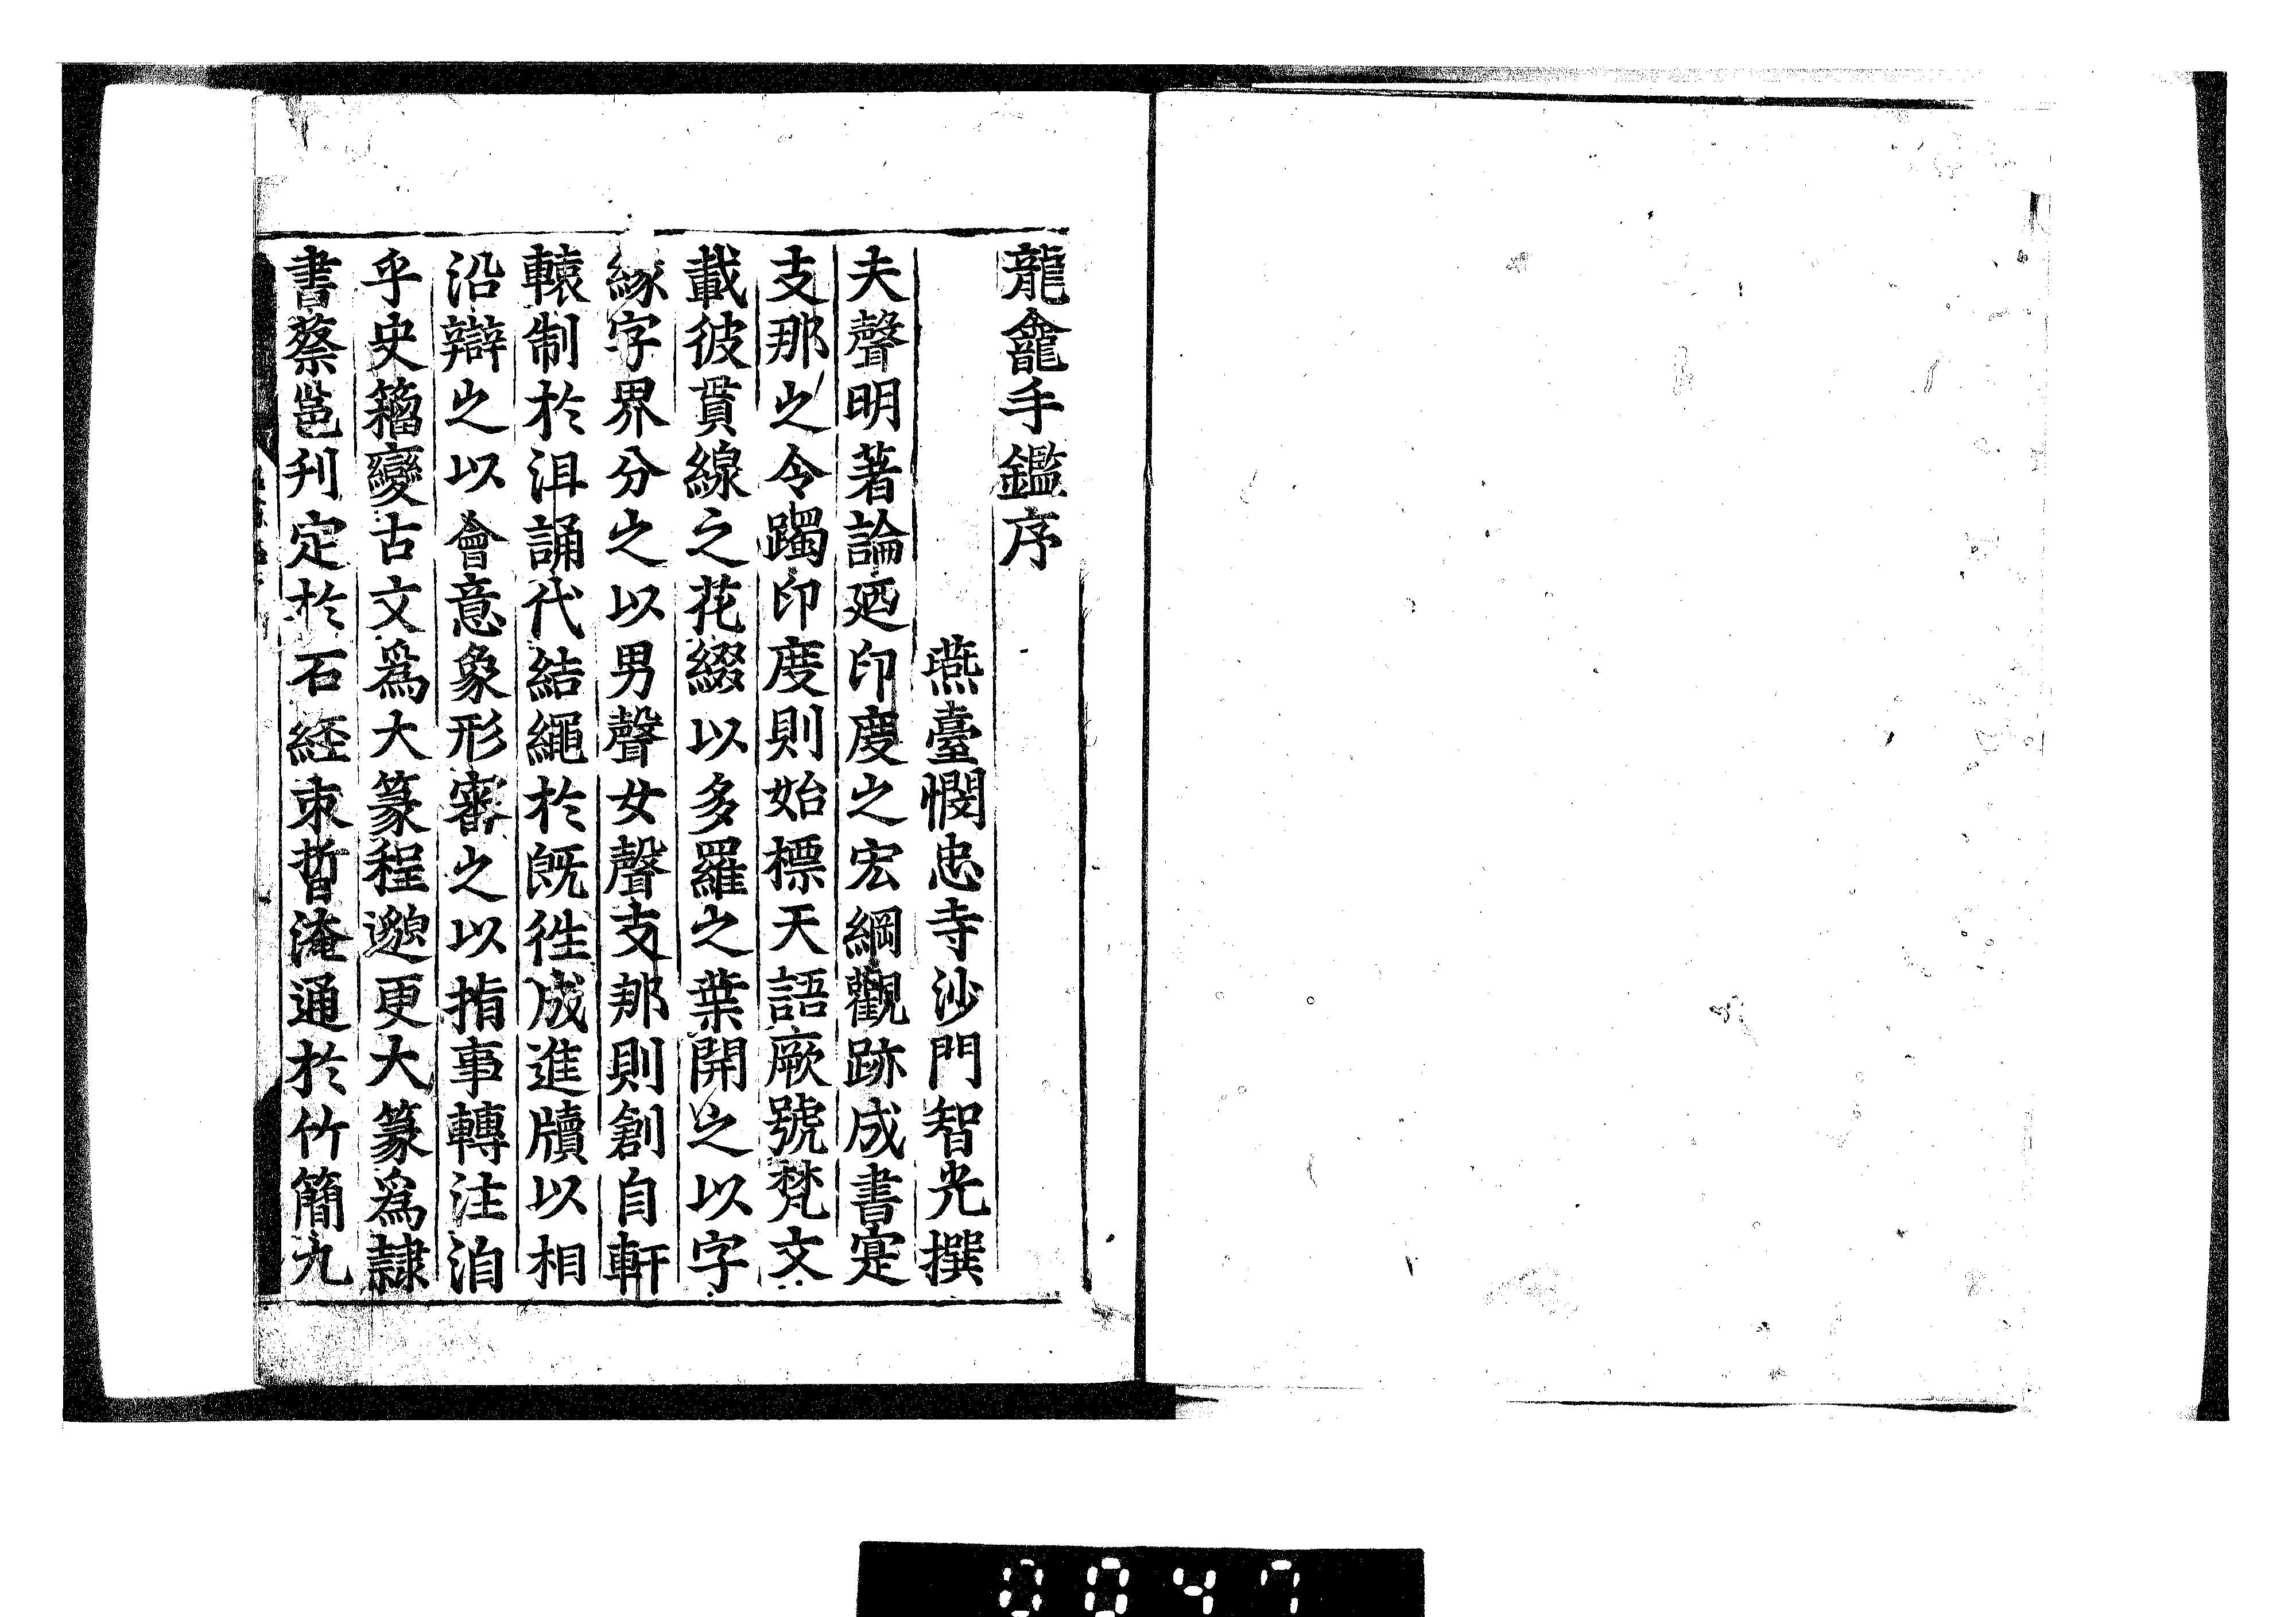 龍龕手鑑序
燕臺憫忠寺沙門智光撰
夫聲明著論廼印度之宏綱觀跡成書寔
支那之令躅印度則始標天語厥號梵文
載彼貫線之花綴以多羅之葉開之以字
緣字界分之以男聲女聲支那則創自軒
轅制於沮誦代結繩於既徃成進牘以相
沿辯之以會意象形審之以指事轉注洎
乎史籀變古文爲大篆程邈更大篆爲隷
書蔡邕刋定於石経束晳淹通於竹簡九
0047